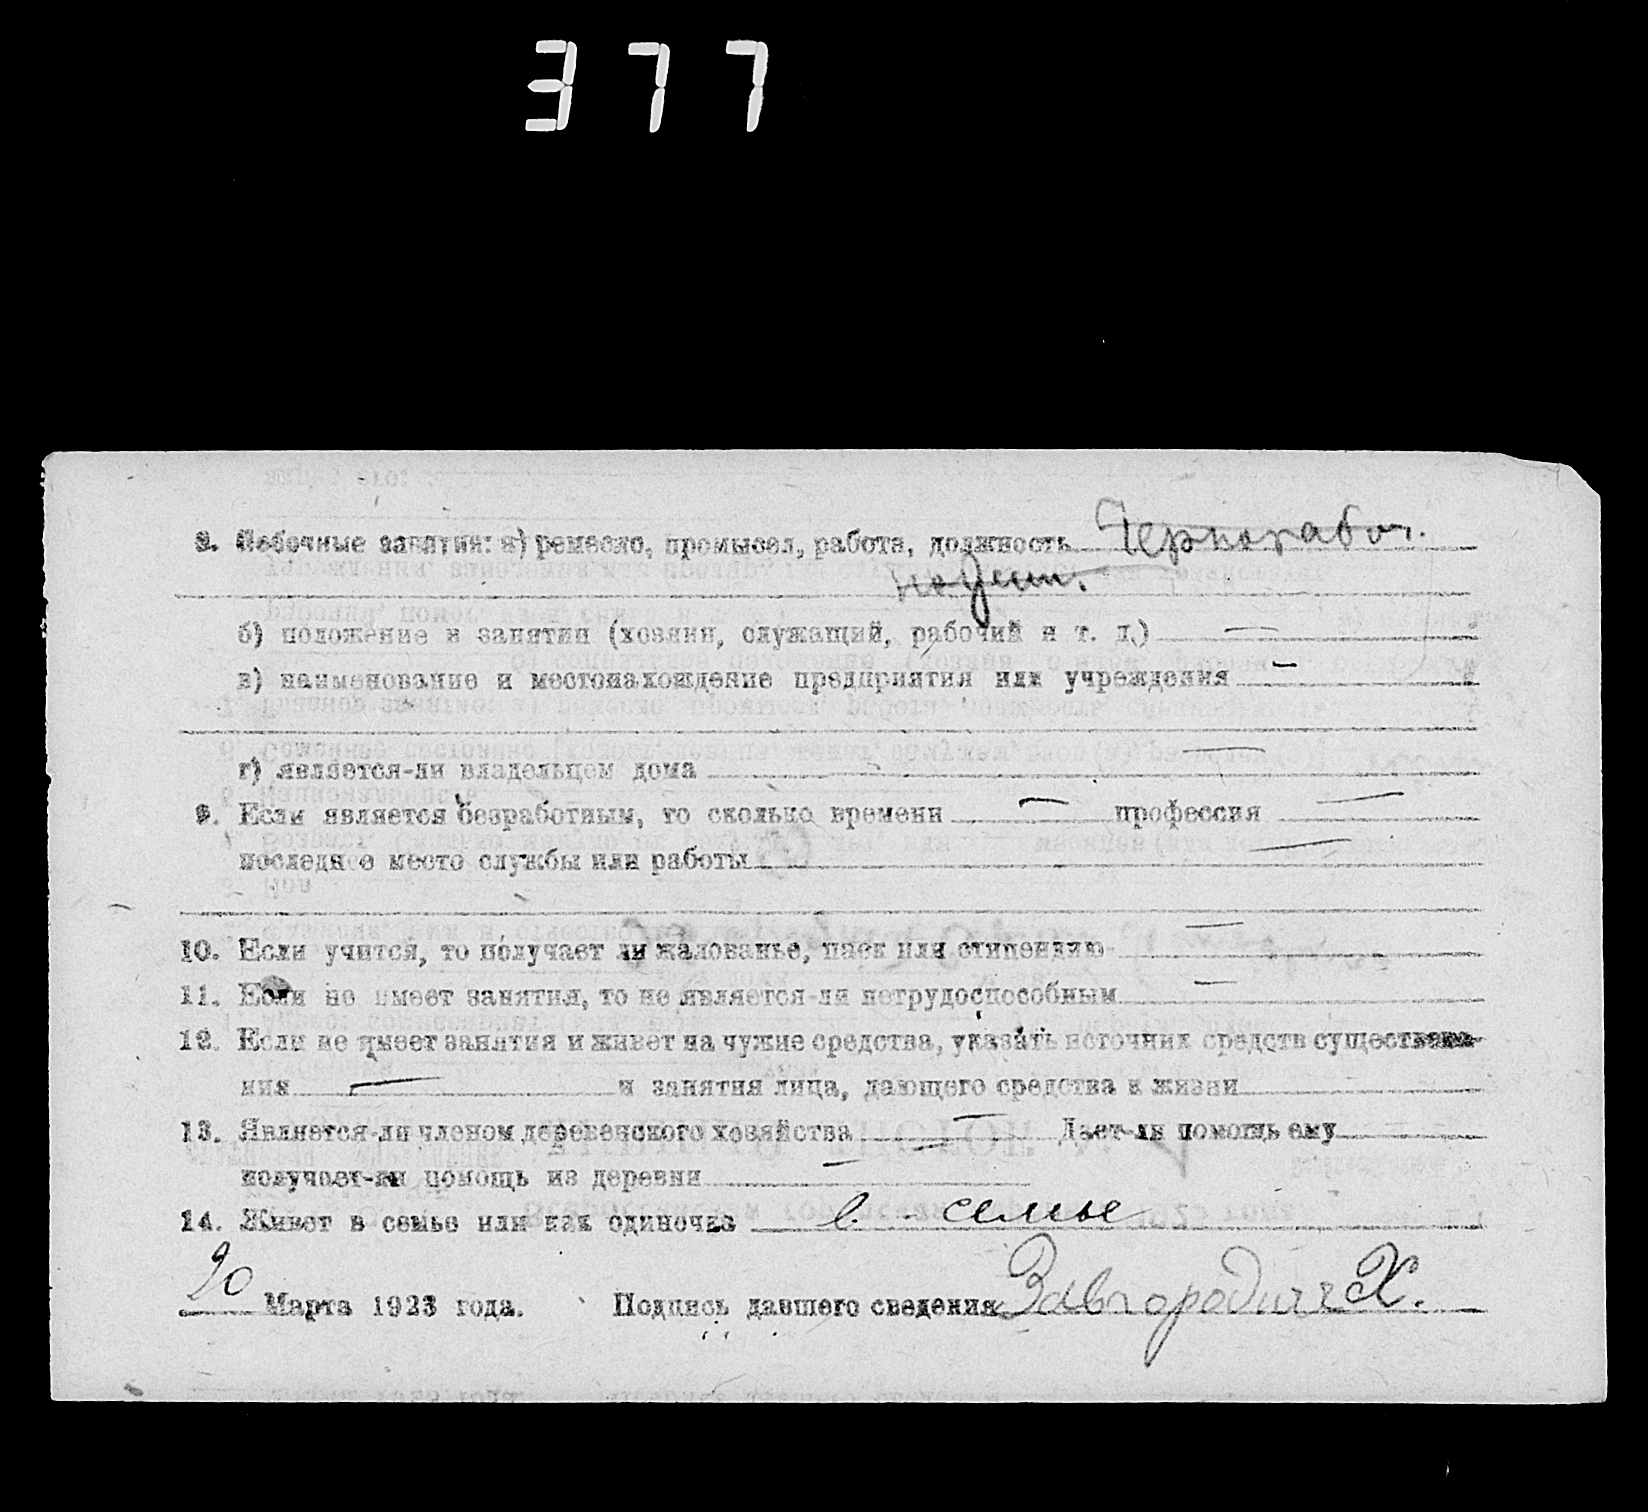 377
8. Побочные занятия: а) ремесло, промысел, работа, должность Чернорабоч.
поденн.
б) положение в занятии (хозяин, служащий, рабочий и т. д.) —
в) наименование и местонахождение предприятия или учреждения —
г) является-ли владельцем дома —
9. Если является безработным, то сколько времени — профессия —
последнее место службы или работы —
10. Если учится, то получает ли жалованье, паек или стипендию —
11. Если не имеет занятия, то не является-ли нетрудоспособным —
12. Если не имеет занятия и живет на чужие средства, указать источник средств существова-
ния — и занятия лица, дающего средства к жизни
13. Является-ли членом деревенского хозяйства — Дает-ли помощь ему
получает-ли помощь из деревни —
14. Живет в семье или как одиночка в семье
20 Марта 1923 года. Подпись давшего сведения Х.